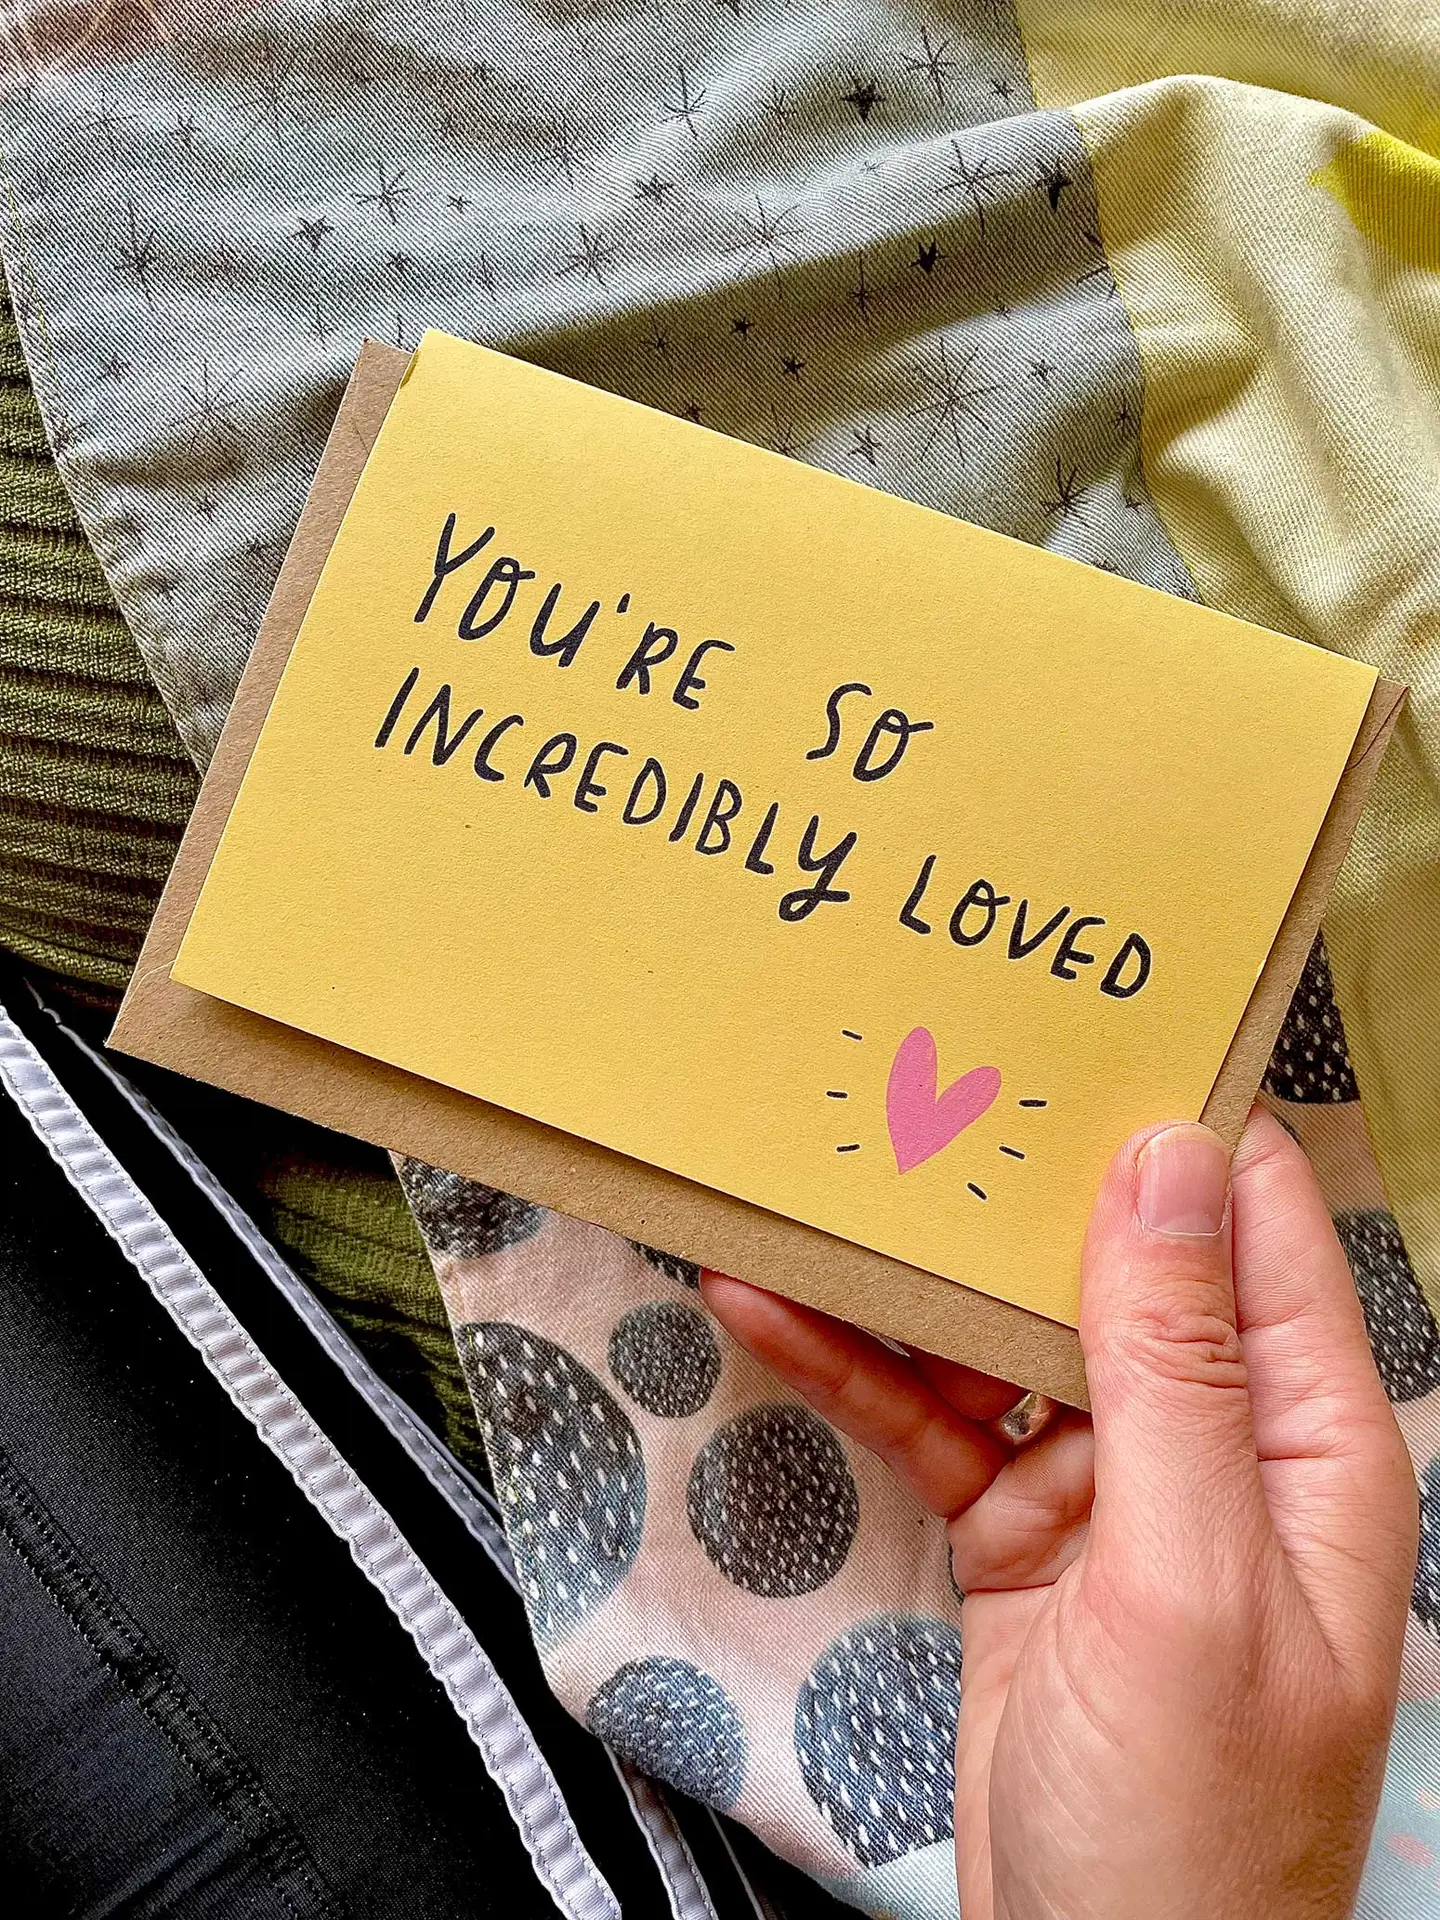 YOU'RE SO
INCREDIBLY LOVED